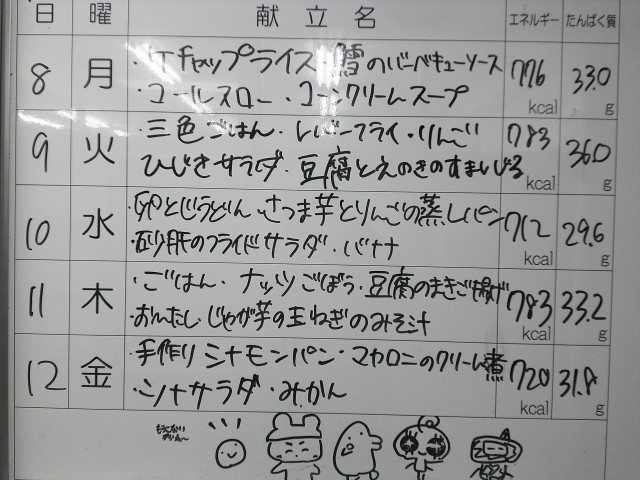 日 曜 献立名 エネルギー たんぱく質
8 月 ・ケチャップライス・鱈のバーベキューソース 776 kcal 33.0 g
・コールスロー・コーンクリームスープ
9 火 ・三色ごはん・レバーフライ・りんご 783 kcal 36.0 g
ひじきサラダ・豆腐とえのきのすましじる
10 水 ・卵とじうどん・さつま芋とりんごの蒸しパン 712 kcal 29.6 g
・砂肝のフライドサラダ・バナナ
11 木 ・ごはん・ナッツごぼう・豆腐のまさご揚げ 783 kcal 33.2 g
・おひたし じゃが芋の玉ねぎのみそ汁
12 金 ・手作りシナモンパン・マカロニのクリーム煮 720 kcal 31.8 g
・シナサラダ・みかん